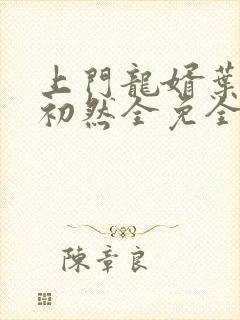 上門龍婿葉
初然全免全
陳章良